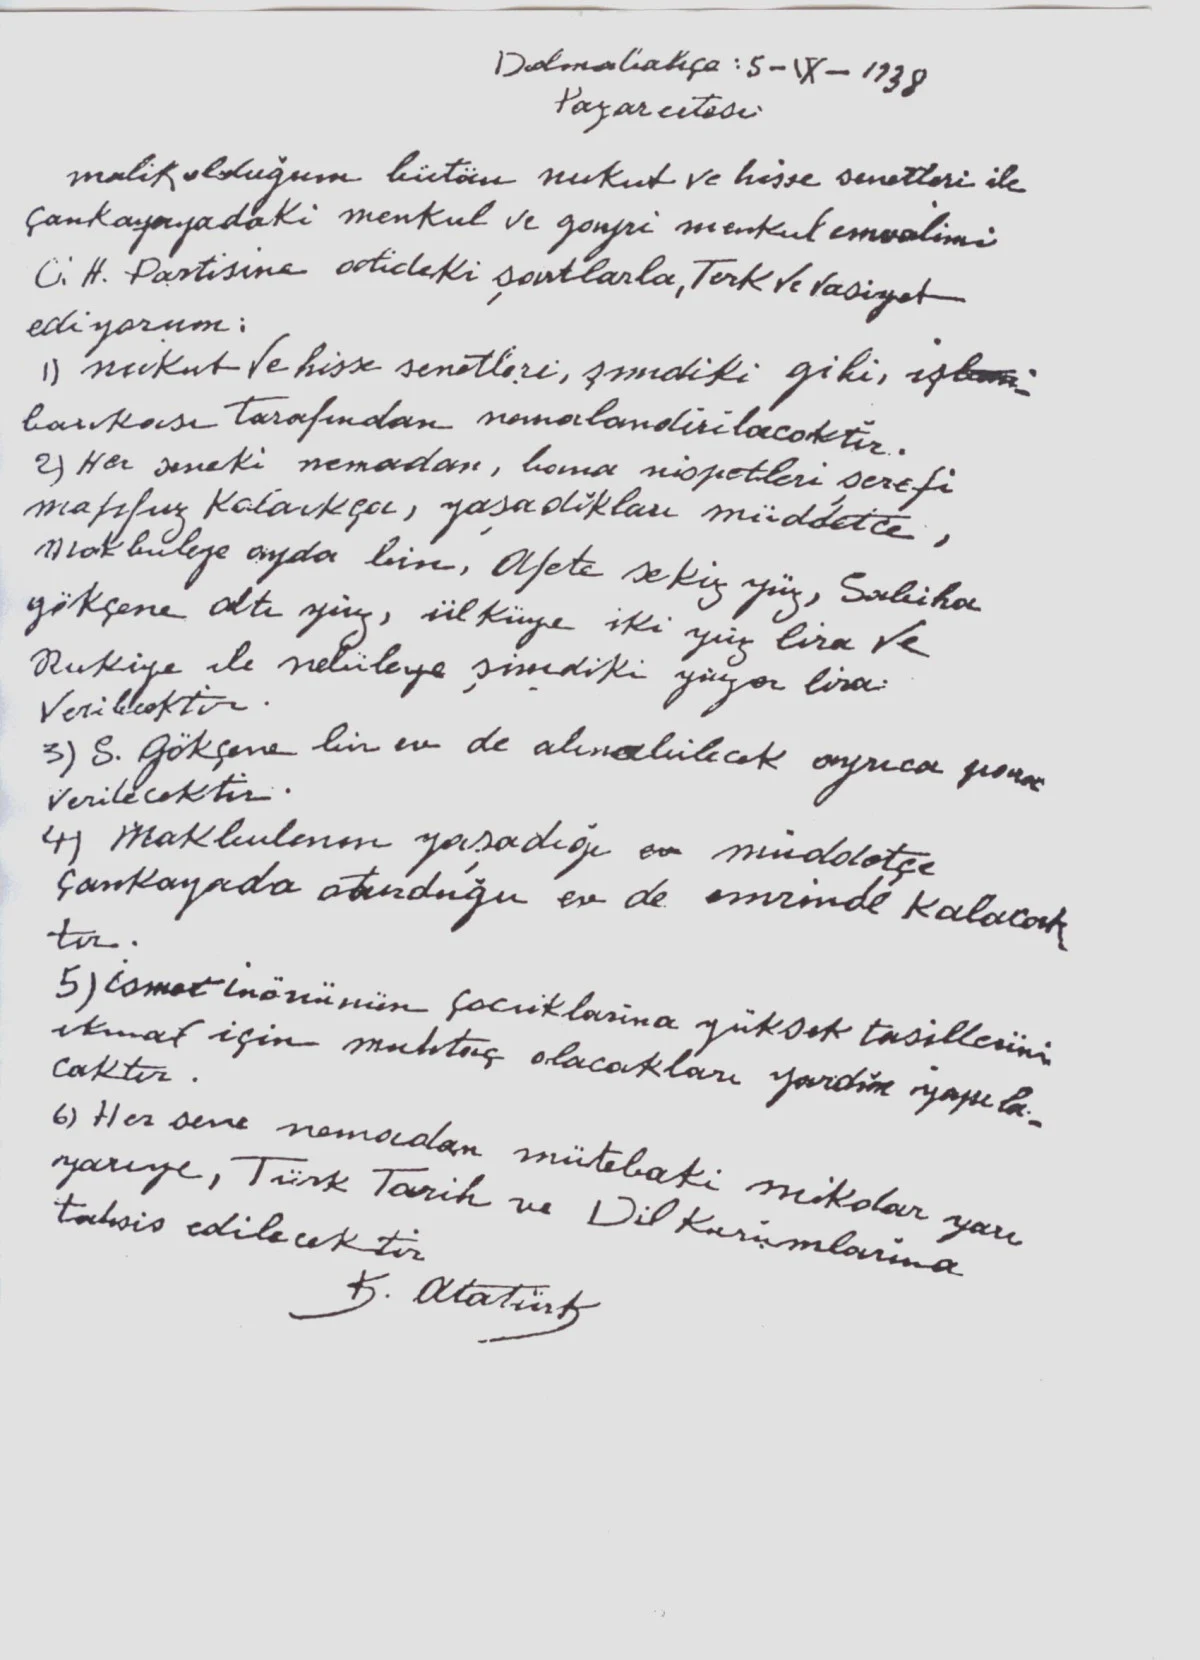 Dolmabahçe: 5-IX-1938
Pazarertesi
malik olduğum bütün nukut ve hisse senetleri ile
Çankayayadaki menkul ve gayri menkul emvalimi
C. H. Partisine atideki şartlarla, Terk ve vasiyet
ediyorum:
1) nukut ve hisse senetleri, şimdiki gibi, iş
bankası tarafından nemalandirilacaktır.
2) Her seneki nemadan, bana nispetleri şerefi
mahfuz kaldıkça, yaşadıkları müddetce,
Makbuleye ayda bin, Afete sekiz yüz, Sabiha
gökçene altı yüz, ülküye iki yüz lira ve
Rukiye ile nebileye şimdiki yüzer lira
verilecektir.
3) S. Gökçene bir ev de alınabilecek ayrıca para
verilecektir.
4) Makbulenin yaşadığı müddetçe
Çankayada oturduğu ev de emrinde kalacak
tır.
5) ismet inönünün çocuklarına yüksek tasillerini
ikmal için muhtaç olacakları yardım yapıla-
caktır.
6) Her sene nemadan mütebaki mikdar yarı
yarıya, Türk Tarih ve Dil Kurumlarına
tahsis edilecektir
K. Atatürk